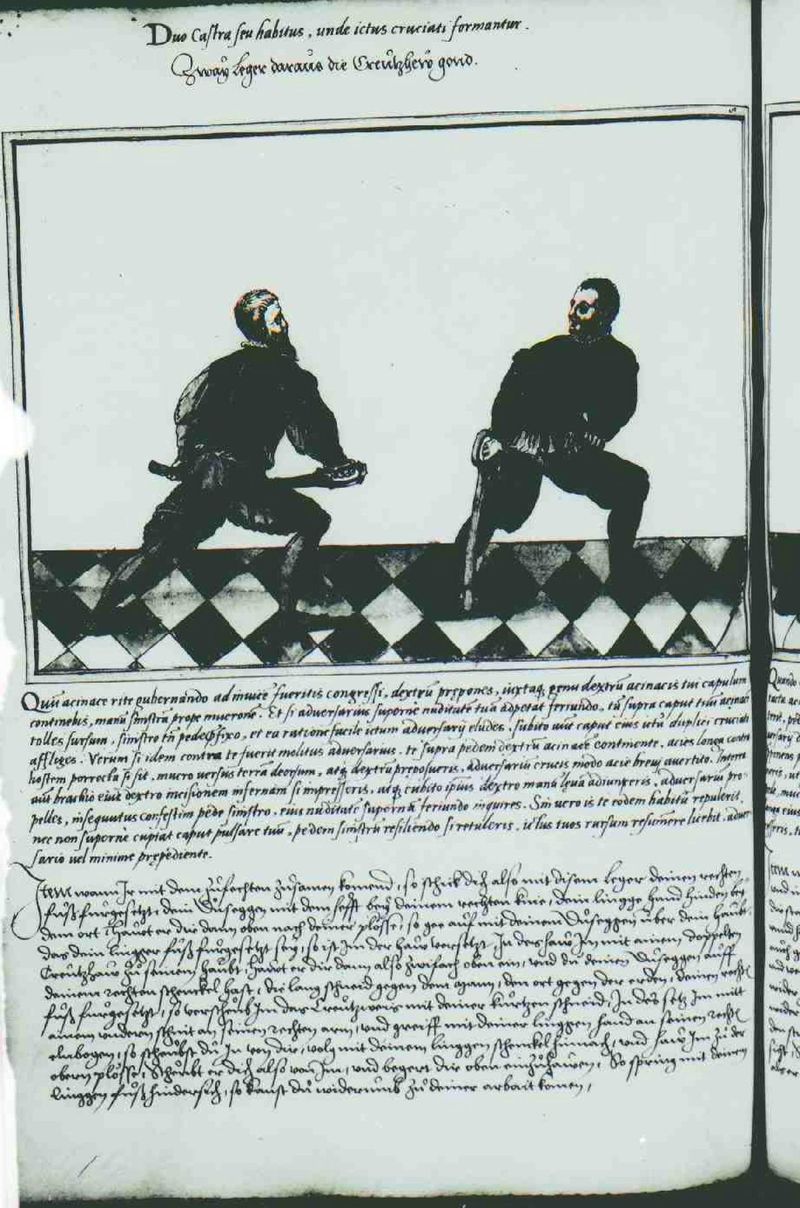 Duo Castra seu habitus, unde ictus cruciati formantur.
Zwaÿ leger daraus die Creutzhew gend.
Quũ acinace rite gubernando ad invicẽ fueritis congressi, dextrũ prępones, iuxtaq, genu dextrũ acinacis tui capulum
continebis, manũ sinistrã prope mucronẽ. Et si adversarius superne nuditatẽ tuã adpetat feriundo, tũ supra caput tuũ acinacẽ
tolles sursum, sinistro tñ pede pręfixo, et ea ratione facile ictum adversarij eludes, subito autẽ caput eius ictu duplici cruciato
affliges. Verum si idem contra te fuerit molitus adversarius, te supra pedem dextrũ acinacẽ continente, acies longa contra
hostem porrecta si sit, mucro versus terrã deorsum, atq, dextrũ preposueris, adversariũ crucis modo acie brevj avertito. Interea
autẽ brachio eius dextro incisionem infernam si impresseris, atq, cubito ipsius dextro manũ lęvã adiunxeris, adversariũ pro-
pelles, insequutus confestim pede sinistro, eius nuditatẽ supernã feriundo inquires. Sin vero is te eodem habitu repulerit,
nec non superne cupiat caput pulsare tuũ, pedem sinistrũ resiliendo si retuleris, ictus tuos rursum resumere licebit, adver
sario vel minime prępediente.
Item wann Ir mit dem zufechten zusamen komend, so schick dich also mit disem leger deinen rechten
fuß furgesetzt, dein Duseggen mit dem hefft beÿ deinem rechten knie, dein lingge hand hinden beÿ
dem ort, Hawet er dir dann oben nach deiner plösse, so gee auf mit deinem Duseggen uber dein haubt,
das dein lingger fuß furgesetzt seÿ, so ist Im der haw versetzt, In des haw Im mit ainem doppelten
Creutzhaw zu seinem haubt, Hawet er dir dann also zwifach oben ein, und du deinen Duseggen auff
deinem rechten schenckel hast, die lang schneid gegen dem mann, den ort gegen der erden, deinen rechtẽ
fuß furgesetzt, so verscheub Im das Creutzweis mit deiner kurtzen schneid, In des setz Im mitt
ainem undern schnit an seinen rechten arm, und greiff mit deiner linggen hand an seinen rechtẽ
elnbogen, so scheubst du In von dir, volg mit deinem linggen schenckel hinnach, und haw Im zu der
obern plösse, Scheubt er dich also von Im, und begert dir oben einzuhawen, So spring mit deinem
linggen fuß hindersich, so kanst du widerumb zu deiner arbait komen,
Quando